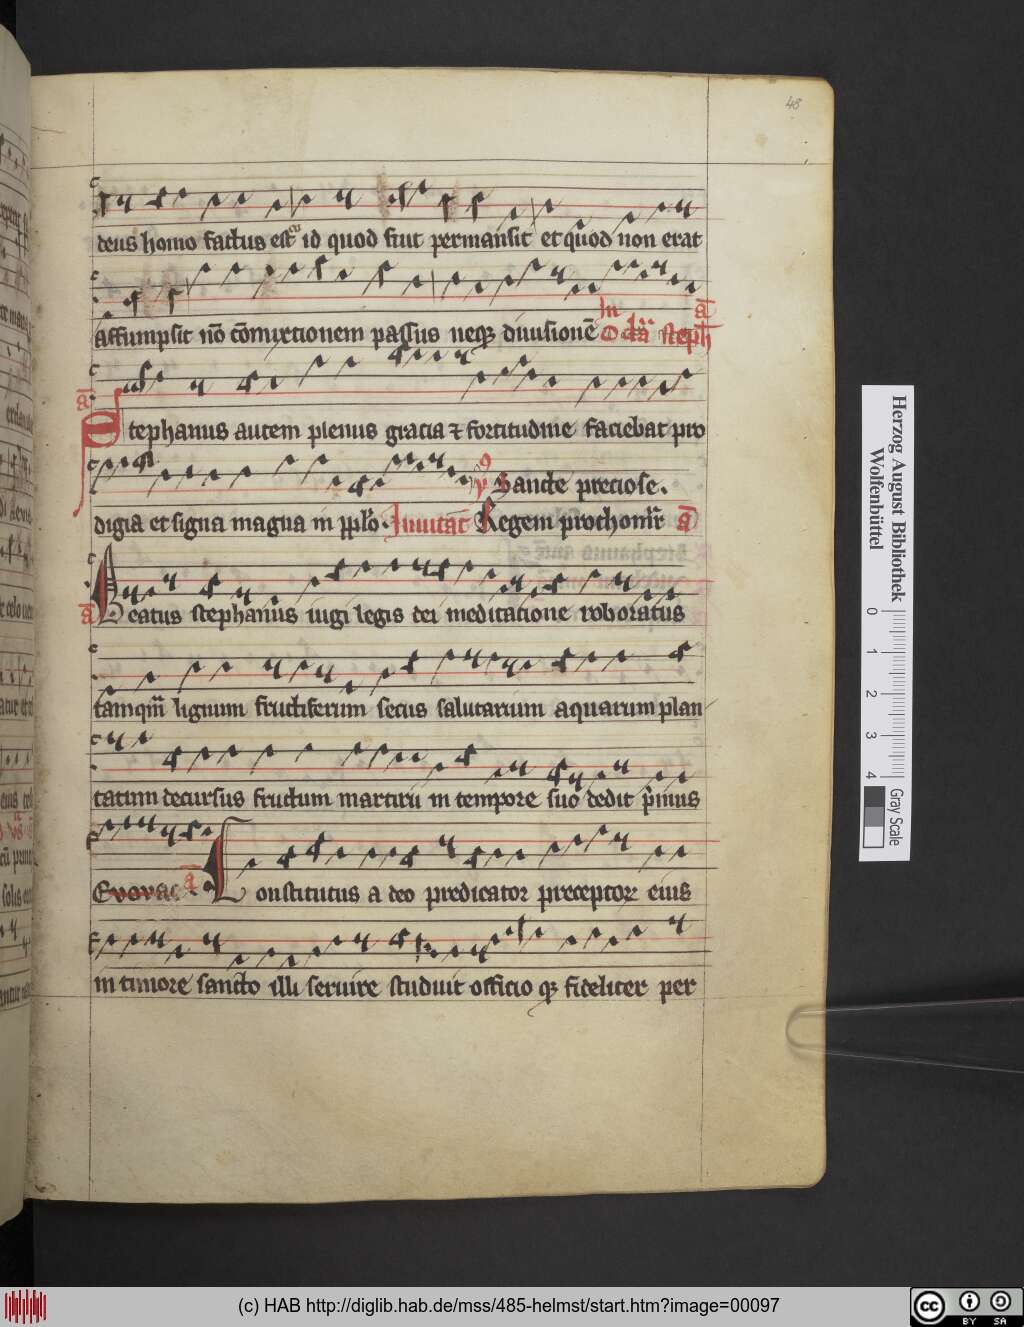 48
deus homo factus est id quod fuit permansit et quod non erat
assumpsit nō cōmixtionem passus neqꝫ diuisionē In
ā
Stephanus autem plenus gracia ⁊ fortitudine faciebat pro
Sancte preciose.
digia et signa magna in pplo. Inuitat̄ Regem prothomr̄ ā
ā Beatus stephanus iugi legis dei meditatione roboratus
tamqm̄ lignum fructiferum secus salutarium aquarum plan
tatum decursus fructum martirii in tempore suo dedit p̄mus
Evovae ā Constitutus a deo predicator preceptor eius
in timore sancto illi seruire studuit officio qꝫ fideliter per
Herzog August Bibliothek
Wolfenbüttel
0 1 2 3 4
Gray Scale
(c) HAB http://diglib.hab.de/mss/485-helmst/start.htm?image=00097
cc BY SA